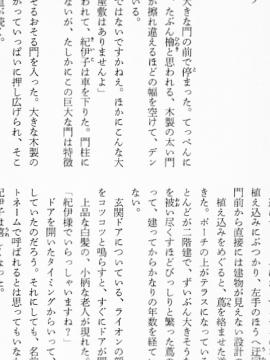 大きな門の前で停まった。てっぺんに
たぶん檜と思われる、木製の太い門
が擦れ違えるほどの幅を空けて、デン
ではないですかねえ。ほかにこんな大
屋敷はありませんよ」
われて、紀伊子は車を下りた。門柱に
ないが、たしかにこの巨大な門は特徴
そるおそる門を入った。大きな木製の
がっていっぱいに押し広げられ、そこ
植え込みにぶつかり、左手のほうへ迂
門前から直接には建物が見えない設計
植え込みをめぐると、蔦を絡ませた
きた。ポーチの上がテラスになって
とんどが二階建で、ずいぶん大きそう
を被い尽くすほどびっしりと繁った蔦
って、建ってからかなりの年数を経て
ない。
玄関ドアについている、ライオンの
をコツコツと鳴らすと、すぐにドアが
上品な白髪の、小柄な老人が現れた。
「紀伊様でいらっしゃいますね?」
ドアを開いたタイミングからいって、
していたのだろう。それにしても、名
トネームで呼ばれるとは思ってもいな